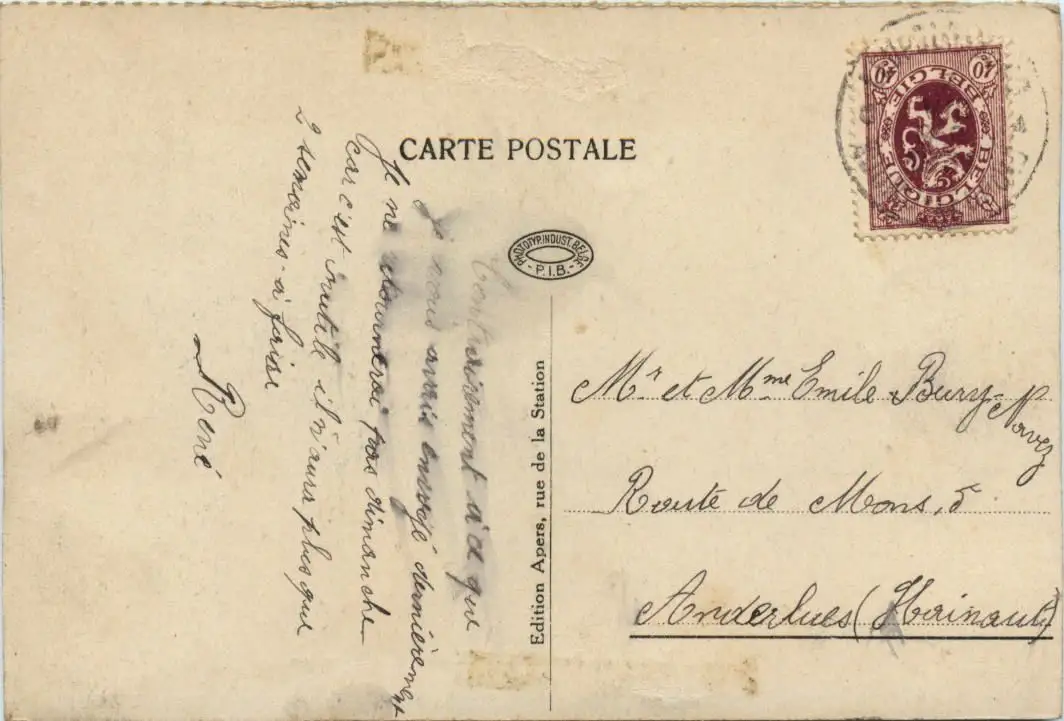 CARTE POSTALE
PHOTOTYP. INDUST. BELGE
- P.I.B. -
Edition Apers, rue de la Station
BELGIE BELGIQUE
40 40
Contrairement à ce que
je vous avais envoyé dernièrement
Je ne retournerai pas dimanche
car c'est inutile il n'aura plus que
2 semaines à faire
René
Mr et Mme Emile Burry-Navez
Route de Mons, 5
Anderlues (Hainaut)